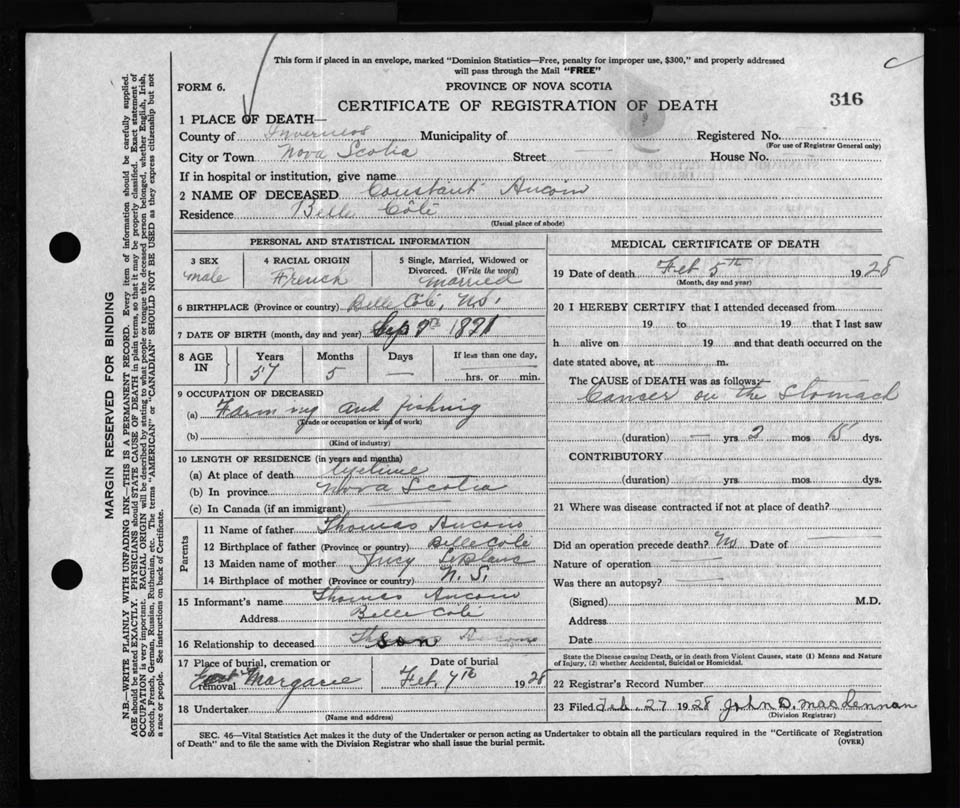 This form if placed in an envelope, marked "Dominion Statistics—Free, penalty for improper use, $300," and properly addressed
will pass through the Mail "FREE"
FORM 6.
PROVINCE OF NOVA SCOTIA
CERTIFICATE OF REGISTRATION OF DEATH
316
1 PLACE OF DEATH—
County of Inverness Municipality of Registered No.
(For use of Registrar General only)
City or Town Nova Scotia Street House No.
If in hospital or institution, give name
2 NAME OF DECEASED Constant Aucoin
Residence Belle Côte
(Usual place of abode)
PERSONAL AND STATISTICAL INFORMATION
3 SEX male
4 RACIAL ORIGIN French
5 Single, Married, Widowed or Divorced. (Write the word) married
6 BIRTHPLACE (Province or country) Belle Côte, NS.
7 DATE OF BIRTH (month, day and year) Sep 9th 1871
8 AGE IN Years 57 Months 5 Days — If less than one day, hrs. or min.
9 OCCUPATION OF DECEASED
(a) Farming and fishing
(Trade or occupation or kind of work)
(b)
(Kind of industry)
10 LENGTH OF RESIDENCE (in years and months)
(a) At place of death lifetime
(b) In province Nova Scotia
(c) In Canada (if an immigrant)
Parents
11 Name of father Thomas Aucoin
12 Birthplace of father (Province or country) Belle Cote
13 Maiden name of mother Lucy Leblanc
14 Birthplace of mother (Province or country) N. S.
15 Informant's name Thomas Aucoin
Address Belle Cote
16 Relationship to deceased Son
17 Place of burial, cremation or removal East Margaree
Date of burial Feb 7th 1928
18 Undertaker
(Name and address)
MEDICAL CERTIFICATE OF DEATH
19 Date of death Feb 5th 1928
(Month, day and year)
20 I HEREBY CERTIFY that I attended deceased from
19 to 19 that I last saw
h alive on 19 and that death occurred on the
date stated above, at m.
The CAUSE of DEATH was as follows:—
Cancer on the stomach
(duration) — yrs 2 mos 15 dys.
CONTRIBUTORY
(duration) yrs mos dys.
21 Where was disease contracted if not at place of death?
Did an operation precede death? No Date of
Nature of operation
Was there an autopsy?
(Signed) M.D.
Address
Date
State the Disease causing Death, or in death from Violent Causes, state (1) Means and Nature
of Injury, (2) whether Accidental, Suicidal or Homicidal.
22 Registrar's Record Number
23 Filed Feb. 27 1928 John D. MacLennan
(Division Registrar)
SEC. 46—Vital Statistics Act makes it the duty of the Undertaker or person acting as Undertaker to obtain all the particulars required in the "Certificate of Registration
of Death" and to file the same with the Division Registrar who shall issue the burial permit.
(OVER)
MARGIN RESERVED FOR BINDING
N.B.—WRITE PLAINLY WITH UNFADING INK—THIS IS A PERMANENT RECORD. Every item of information should be carefully supplied.
AGE should be stated EXACTLY. PHYSICIANS should STATE CAUSE OF DEATH in plain terms, so that it may be properly classified. Exact statement of
OCCUPATION is very important. RACIAL ORIGIN will be described by stating to what people or tongue the deceased person belonged, whether English, Irish,
Scotch, French, German, Russian, Ruthenian, etc. The terms "AMERICAN" or "CANADIAN" SHOULD NOT BE USED as they express citizenship but not
a race or people. See instructions on back of Certificate.